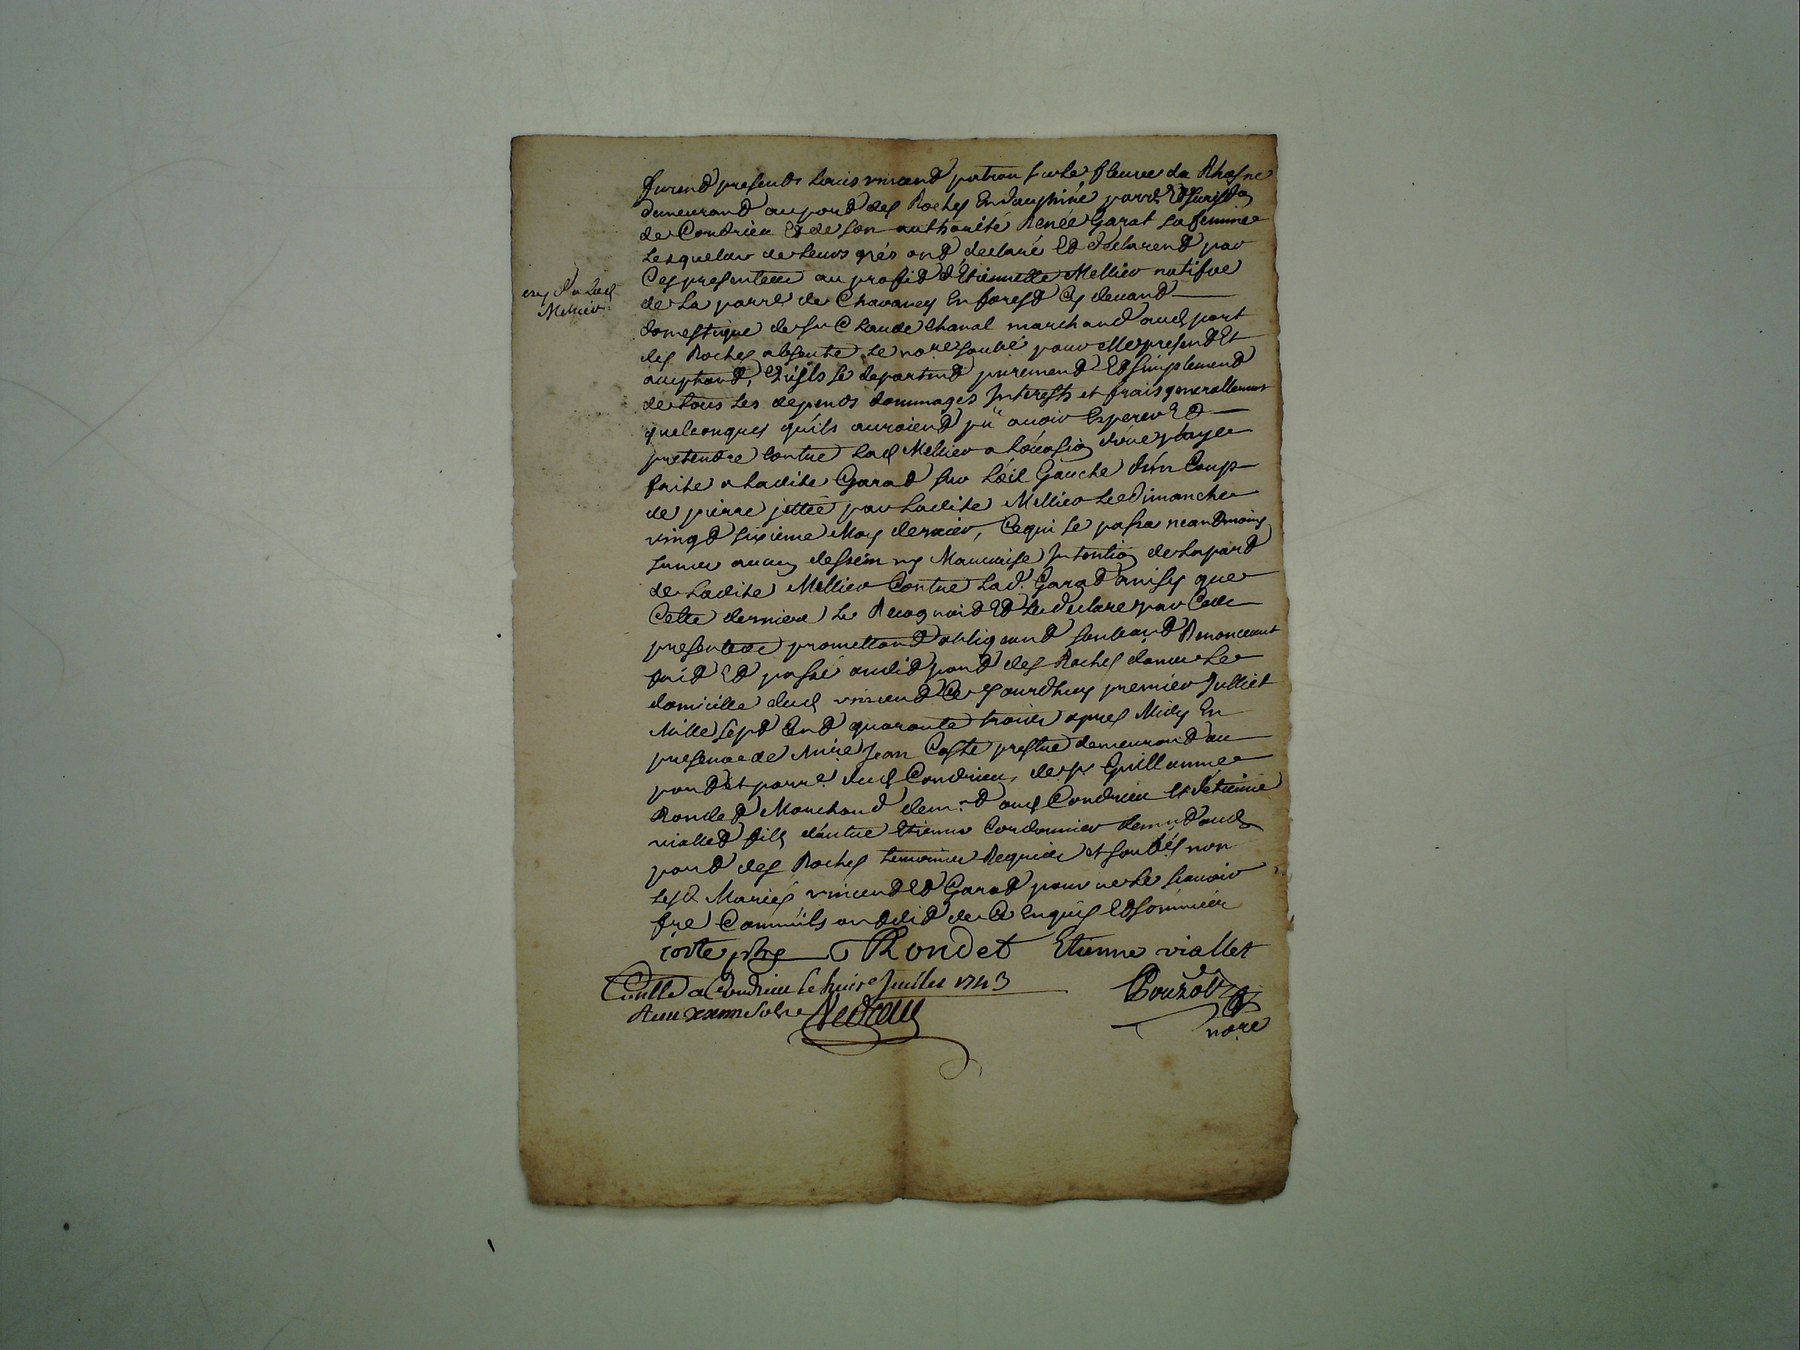 furend presents Louis vincend patron sur Le fleuve du Rhosne
demeurand au pord des Roches En dauphiné parr.e Et Juridon
de Condrieu Et de son authorité Renée Garat sa femme
Lesquelus de Leurs grés ond declaré Ed declarend par
Ces presentes au profid d'Etiennette Mellier natifve
exp.d a Lad.
Mellier
de La parr.e de Chavaney En forest Cy devand
domestique de sr Claude Chaval marchand aud. port
des Roches absente Le no.re soub.é pour Elle presend Et
acceptand, qu'ils se departend purement Ed simplemend
de tous Les depends dommages Interests et frais generallement
quelconques qu'ils auroiend pu avoir Esperer Ed
pretendre Contre Lad. Mellier a L'ocasion d'une playe
faite a Ladite Garad sur L'œil Gauche d'un Coup
de pierre jettée par Ladite Mellier Le dimanche
vingd sixieme May dernier, Ce qui se passa neandmoins
sans aucun dessein ny Mauvaise Intention de La pard
de Ladite Mellier Contre Lad. Garad ainsy que
Cette derniere Le Recognoid Ed Le declare par Cette
presentes promettand obligeand Renonceant
faid Ed passé audid pord des Roches dans Le
domicille dud. vincend Ce jourdhuy premier Julliet
Mille sept Cend quarante trois apres Midy En
presence de Mre Jean Coste prestre demeurand au
pord et parr.e dud. Condrieu, de sr Guillaume
Ronded Marchand dem.rd aud. Condrieu Et d'Etienne
viallet fils d'autre Etienne Cordonnier dem.rd aud.
pord des Roches temoins Requis et soub.és non
Lesd. Mariés vincend Ed Garad pour ne Le scavoir
fre Comm'ils ond did de Ce Enquis Ed sommés
Coste ptre Rondet Etienne viallet
Con.tlé a Condrieu le huit.e Juillet 1743
Bouzot
no.re